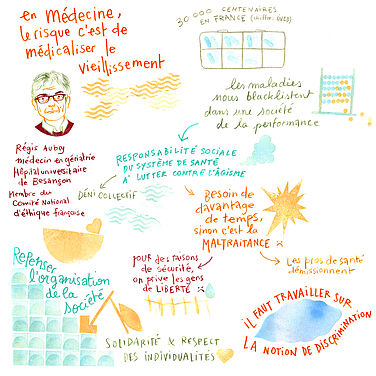 en Médecine,
le risque c'est de
médicaliser le
vieillissement
30 000 CENTENAIRES
EN FRANCE
les maladies
nous blacklistent
dans une société
de la performance
Régis Aubry
médecin en gériatrie
Hôpital universitaire
de Besançon
Membre du
Comité National
d'éthique française
RESPONSABILITÉ SOCIALE
DU SYSTÈME DE SANTÉ
A LUTTER CONTRE L'ÂGISME
DÉNI COLLECTIF
BESOIN DE
davantage
de temps,
sinon c'est la
MALTRAITANCE
Les pros de santé
démissionnent
Repenser
l'organisation
de la
société
pour des raisons
de sécurité,
on prive les gens
de LIBERTÉ
IL FAUT TRAVAILLER SUR
LA NOTION DE DISCRIMINATION
SOLIDARITÉ & RESPECT
DES INDIVIDUALITÉS